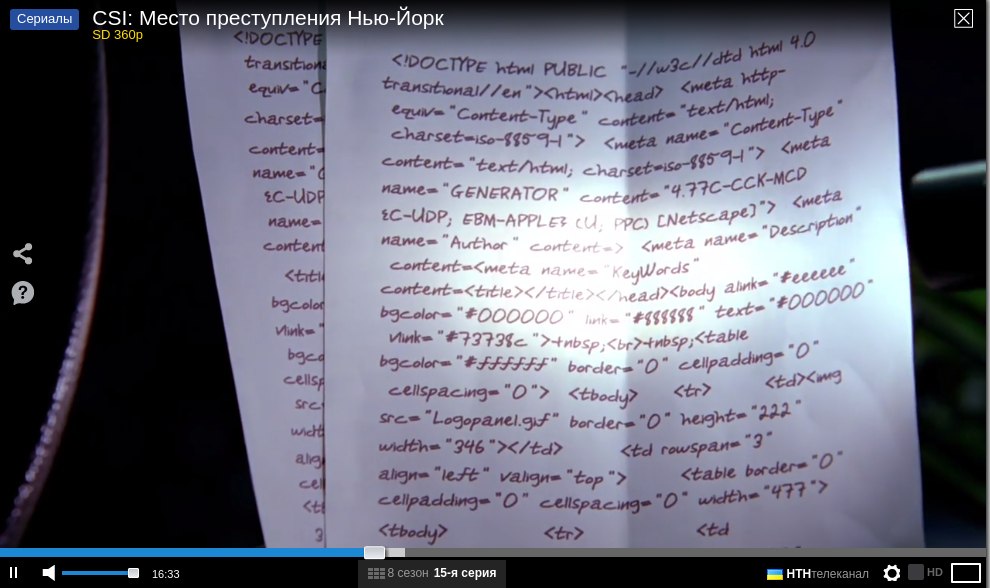 Сериалы CSI: Место преступления Нью-Йорк
SD 360p
<!DOCTYPE
transitiona
equiv="C
charset=
content=
name="C
&C-UDP
name=
content
<title
bgcolor
vlink="
bgco
cellsp
src=
widt
alig
cel
<t
3
<!DOCTYPE html PUBLIC "-//w3c//dtd html 4.0
transitional//en"><html><head> <meta http-
equiv="Content-Type" content="text/html;
charset=iso-8859-1"> <meta name="Content-Type"
content="text/html; charset=iso-8859-1"> <meta
name="GENERATOR" content="4.77C-CCK-MCD
{C-UDP; EBM-APPLE} (U; PPC) [Netscape]"> <meta
name="Author" content=> <meta name="Description"
content=<meta name="KeyWords"
content=<title></title></head><body alink="#eeeeee"
bgcolor="#000000" link="#888888" text="#000000"
vlink="#73738c"> <br> <table
bgcolor="#ffffff" border="0" cellpadding="0"
cellspacing="0"> <tbody> <tr> <td><img
src="Logopanel.gif" border="0" height="222"
width="346"></td> <td rowspan="3"
align="left" valign="top"> <table border="0"
cellpadding="0" cellspacing="0" width="477">
<tbody> <tr> <td
16:33 8 сезон 15-я серия НТНтелеканал HD